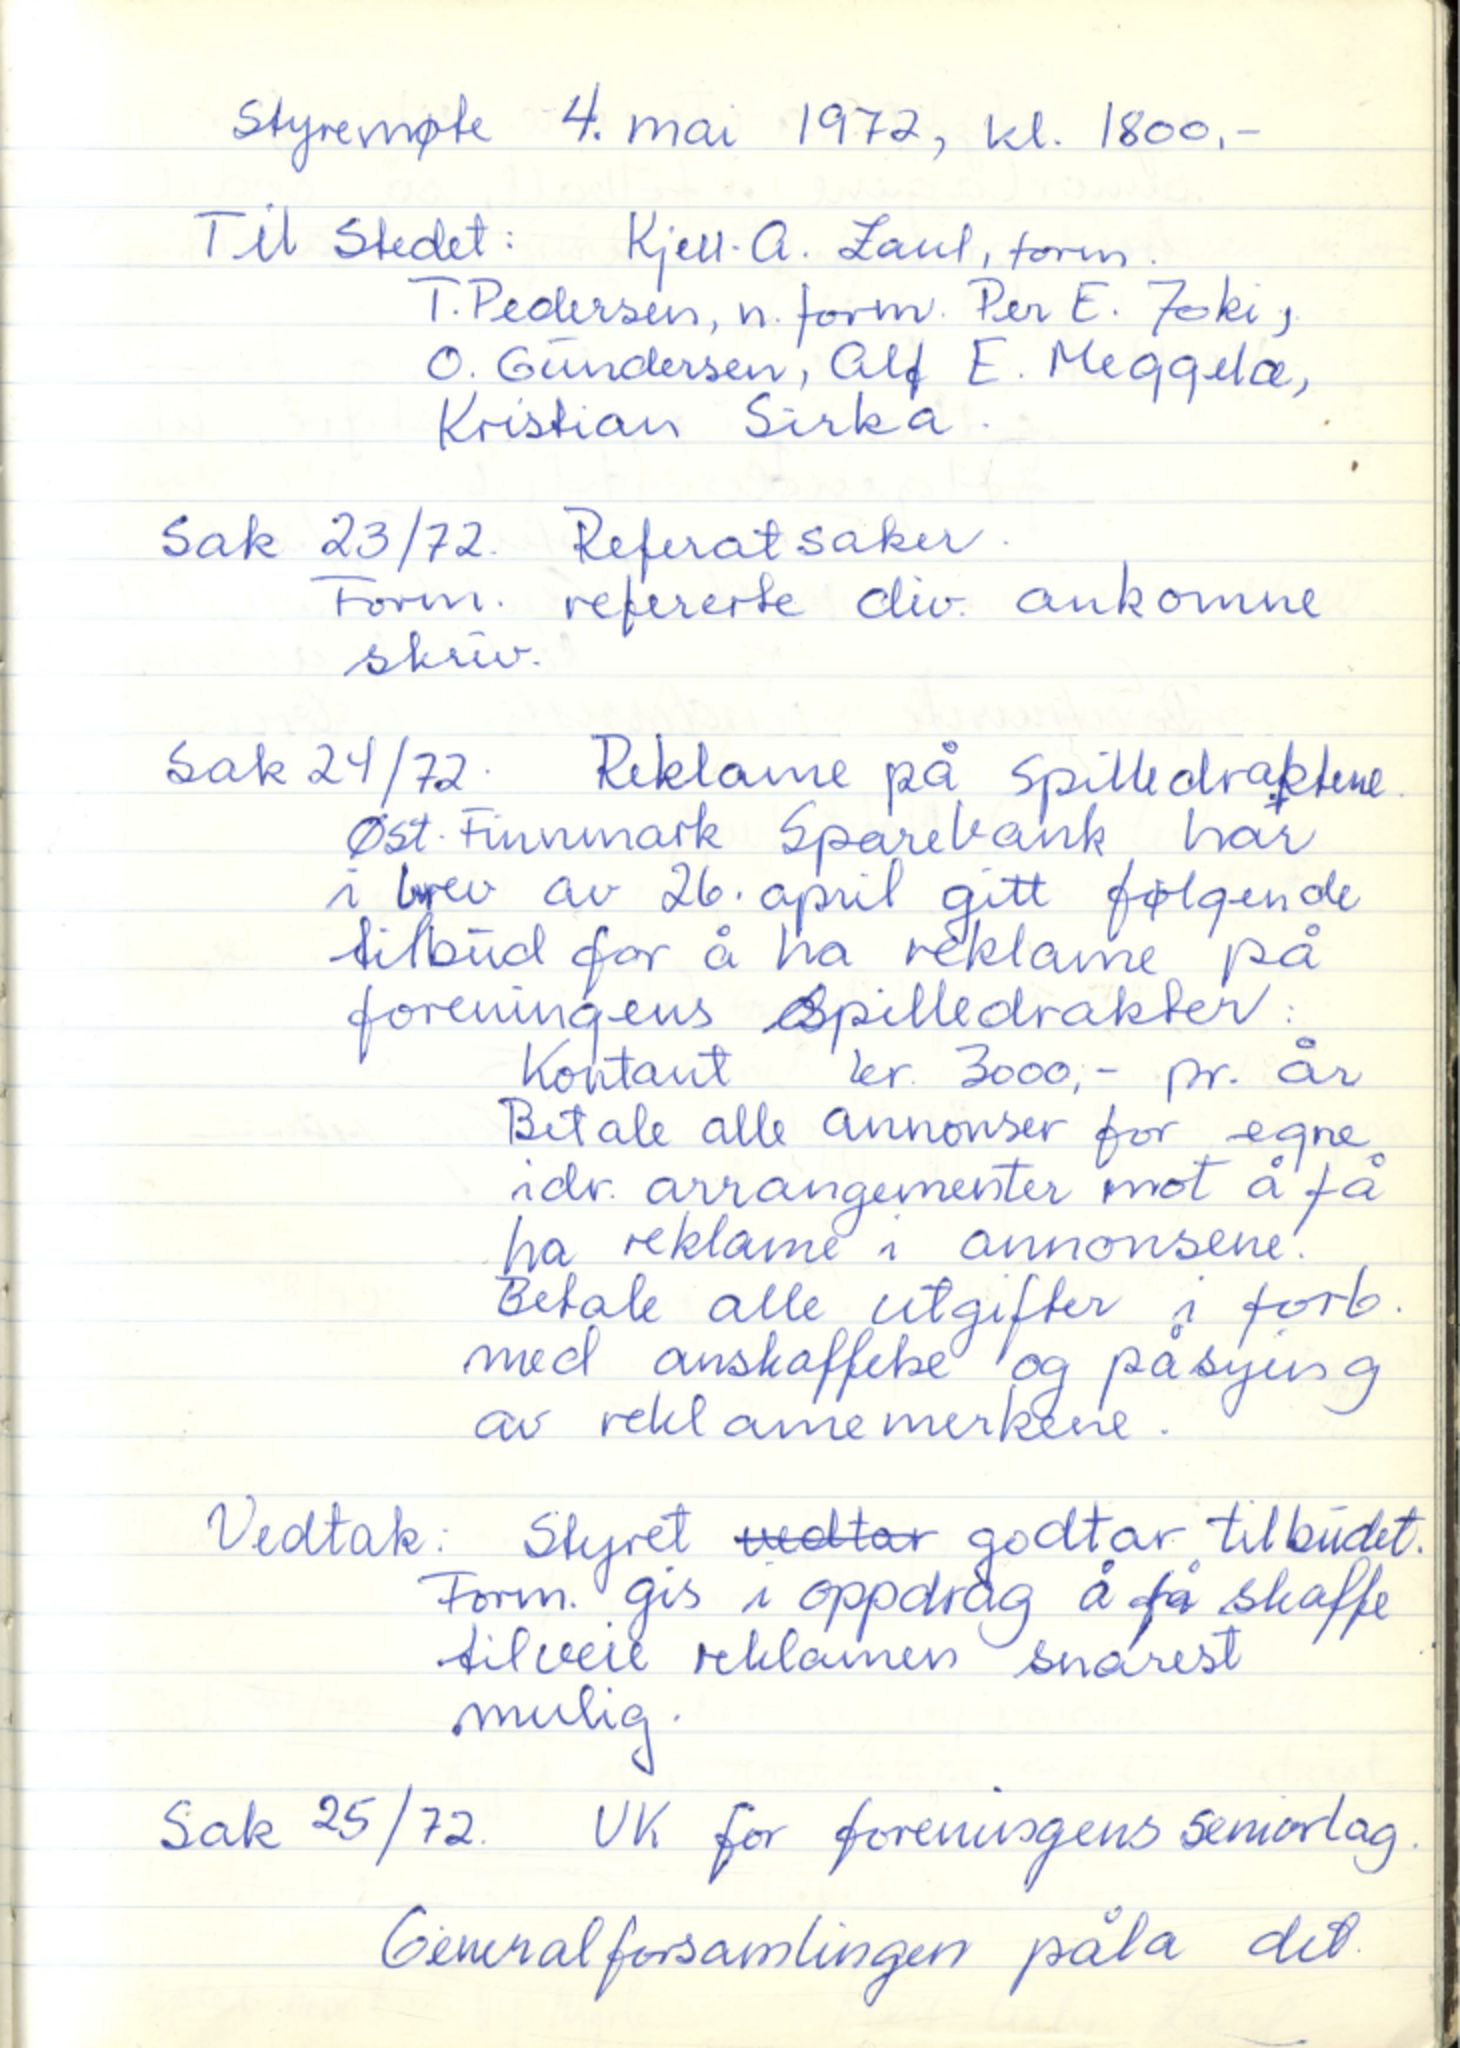 Styremøte 4. mai 1972, kl. 1800,-
Til Stedet: Kjell. A. Zaul, form.
T. Pedersen, n. form. Per E. Joki,
O. Gundersen, Alf E. Meggela,
Kristian Sirka.
Sak 23/72. Referatsaker.
Form. refererte div. ankomne
skriv.
Sak 24/72. Reklame på spilledraktene.
Øst-Finnmark Sparebank har
i brev av 26. april gitt følgende
tilbud for å ha reklame på
foreningens spilledrakter:
Kontant kr. 3000,- pr. år
Betale alle annonser for egne
idr. arrangementer mot å få
ha reklame i annonsene.
Betale alle utgifter i forb.
med anskaffelse og påsying
av reklamemerkene.
Vedtak: Styret vedtar godtar tilbudet.
Form. gis i oppdrag å få skaffe
tilveie reklamen snarest
mulig.
Sak 25/72. UK for foreningens seniorlag.
Generalforsamlingen påla det